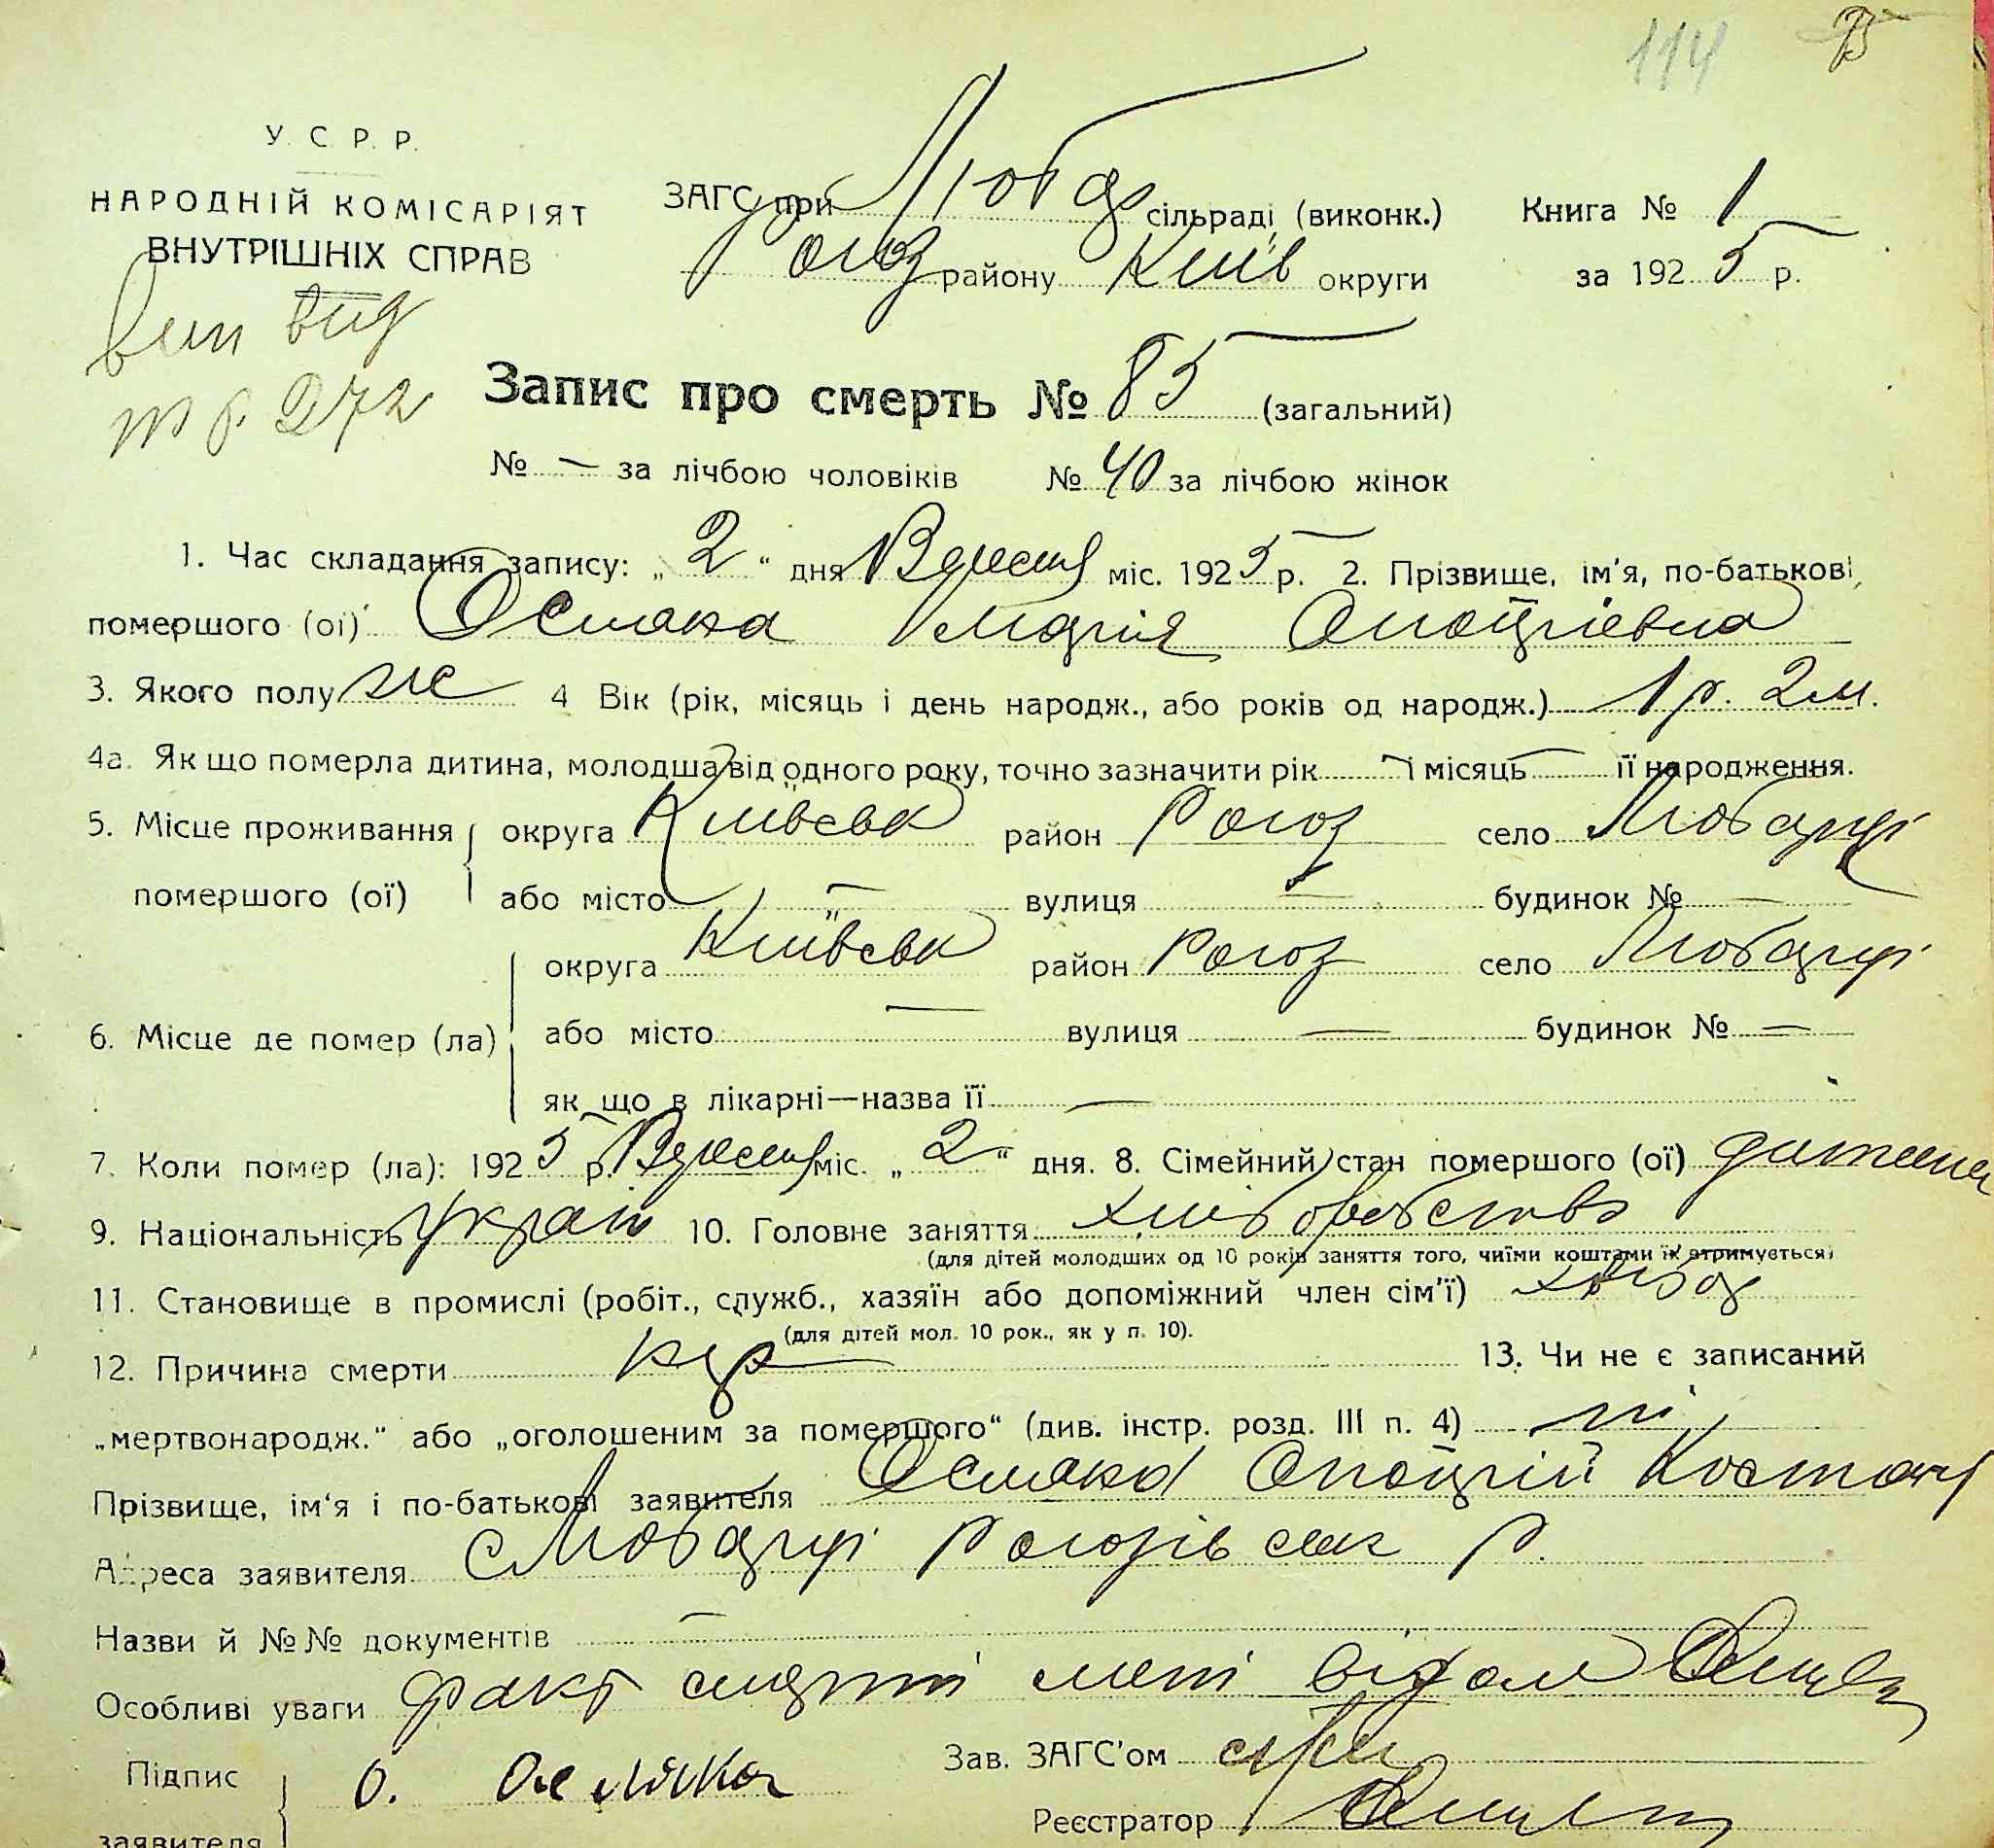 114
У. С. Р. Р.
НАРОДНІЙ КОМІСАРІЯТ
ВНУТРІШНІХ СПРАВ
ЗАГС при Любар сільраді (виконк.)
Рогоз району Київ округи
Книга № 1
за 1925 р.
вип вид
№ 272
Запис про смерть № 85 (загальний)
№ — за лічбою чоловіків № 40 за лічбою жінок
1. Час складання запису: „2“ дня Вересня міс. 1925 р. 2. Прізвище, ім'я, по-батькові
помершого (ої) Осмака Марія Онопріевна
3. Якого полу ж 4 Вік (рік, місяць і день народж., або років од народж.) 1 р. 2 м.
4а. Як що померла дитина, молодша від одного року, точно зазначити рік — і місяць — її народження.
5. Місце проживання округа Київськ район Рогоз село Любарці
помершого (ої) або місто — вулиця — будинок № —
округа Київськ район Рогоз село Любарці
6. Місце де помер (ла) або місто — вулиця — будинок № —
як що в лікарні—назва її —
7. Коли помер (ла): 1925 р. Вересня міс. „2“ дня. 8. Сімейний стан помершого (ої) дитина
9. Національність Украін 10. Головне заняття хліборобство
(для дітей молодших од 10 років заняття того, чиїми коштами їх отримується)
11. Становище в промислі (робіт., служб., хазяїн або допоміжний член сім'ї)
(для дітей мол. 10 рок., як у п. 10).
12. Причина смерти кір 13. Чи не є записаний
„мертвонародж.“ або „оголошеним за помершого“ (див. інстр. розд. III п. 4) ні
Прізвище, ім'я і по-батькові заявителя Осмака Онопрій Костянт
Адреса заявителя с Любарці Рогозівськ р.
Назви й №№ документів —
Особливі уваги факт смерти мені відом
Підпис О. Осмака
заявителя
Зав. ЗАГС'ом
Реєстратор